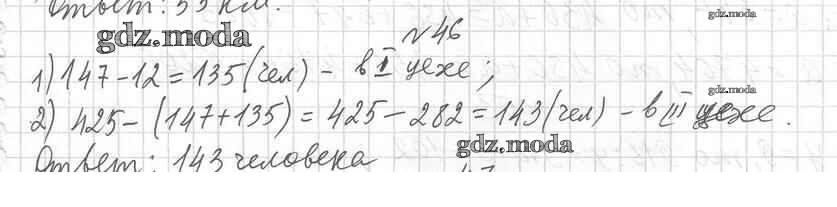 Ответ: 53 км.
gdz.moda
gdz.moda
№46
1) 147-12=135(чел) - в I цехе;
gdz.moda
2) 425-(147+135)=425-282=143(чел) - в III цехе.
gdz.moda
Ответ: 143 человека